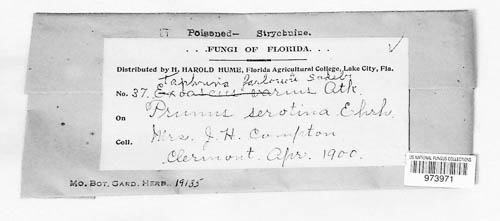 Poisoned— Strychnine.
. . .FUNGI OF FLORIDA. . . .
Distributed by H. HAROLD HUME, Florida Agricultural College, Lake City, Fla.
Taphrina farlowii Sadeb.
No. 37. Exoascus varius Atk.
On Prunus serotina Ehrh.
Coll. Mrs. J. H. Compton
Clermont. Apr. 1900.
MO. BOT. GARD. HERB. 19135
US NATIONAL FUNGUS COLLECTIONS
973971